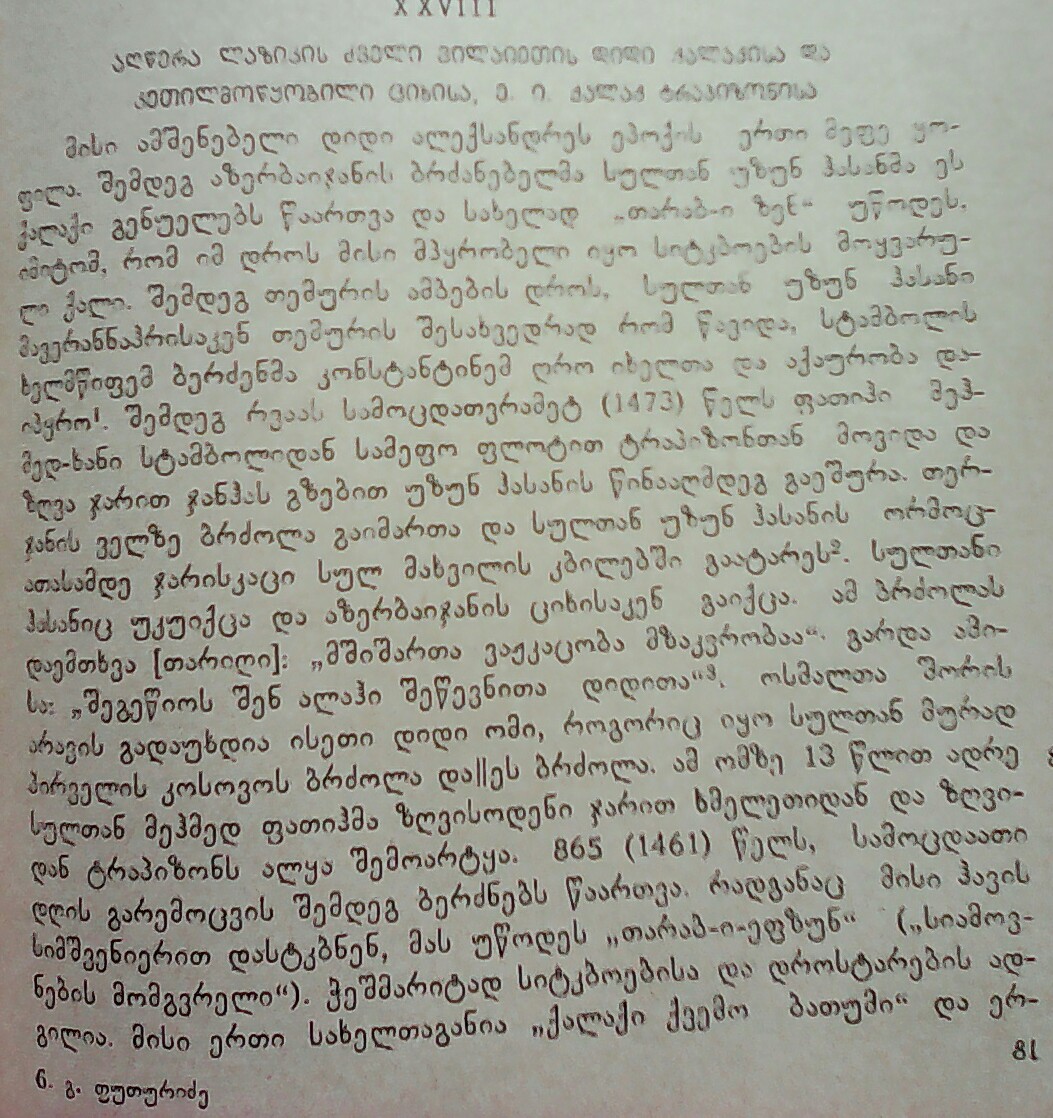 XXVIII
აღწერა ლაზიკის ძველი ვილაიეთის დიდი ქალაქისა და
კეთილმოწყობილი ციხისა, ე. ი. ქალაქ ტრაპიზონისა
მისი ამშენებელი დიდი ალექსანდრეს ეპოქის ერთი მეფე ყო-
ფილა. შემდეგ აზერბაიჯანის ბრძანებელმა სულთან უზუნ ჰასანმა ეს
ქალაქი გენუელებს წაართვა და სახელად „თარაბ-ი ზენ“ უწოდეს,
იმიტომ, რომ იმ დროს მისი მპყრობელი იყო სიტკბოების მოყვარუ-
ლი ქალი. შემდეგ თემურის ამბების დროს, სულთან უზუნ ჰასანი
მავერანნაჰრისაკენ თემურის შესახვედრად რომ წავიდა, სტამბოლის
ხელმწიფემ ბერძენმა კონსტანტინემ დრო იხელთა და აქაურობა და-
იპყრო¹. შემდეგ რვაას სამოცდათვრამეტ (1473) წელს ფათიჰი მეჰ-
მედ-ხანი სტამბოლიდან სამეფო ფლოტით ტრაპიზონთან მოვიდა და
ზღვა ჯარით ჯანჰას გზებით უზუნ ჰასანის წინააღმდეგ გაეშურა. თერ-
ჯანის ველზე ბრძოლა გაიმართა და სულთან უზუნ ჰასანის ორმოც-
ათასამდე ჯარისკაცი სულ მახვილის კბილებში გაატარეს². სულთანი
ჰასანიც უკუიქცა და აზერბაიჯანის ციხისაკენ გაიქცა. ამ ბრძოლას
დაემთხვა [თარიღი]: „მშიშართა ვაჟკაცობა მზაკვრობაა“. გარდა ამი-
სა: „შეგეწიოს შენ ალაჰი შეწევნითა დიდითა“³. ოსმალთა შორის
არავის გადაუხდია ისეთი დიდი ომი, როგორიც იყო სულთან მურად
პირველის კოსოვოს ბრძოლა და||ეს ბრძოლა. ამ ომზე 13 წლით ადრე
სულთან მეჰმედ ფათიჰმა ზღვისოდენი ჯარით ხმელეთიდან და ზღვი-
დან ტრაპიზონს ალყა შემოარტყა. 865 (1461) წელს, სამოცდაათი
დღის გარემოცვის შემდეგ ბერძნებს წაართვა. რადგანაც მისი ჰავის
სიმშვენიერით დასტკბნენ, მას უწოდეს „თარაბ-ი-ეფზუნ“ („სიამოვ-
ნების მომგვრელი“). ჭეშმარიტად სიტკბოებისა და დროსტარების ად-
გილია. მისი ერთი სახელთაგანია „ქალაქი ქვემო ბათუმი“ და ერ-
81
6. გ. ფუთურიძე